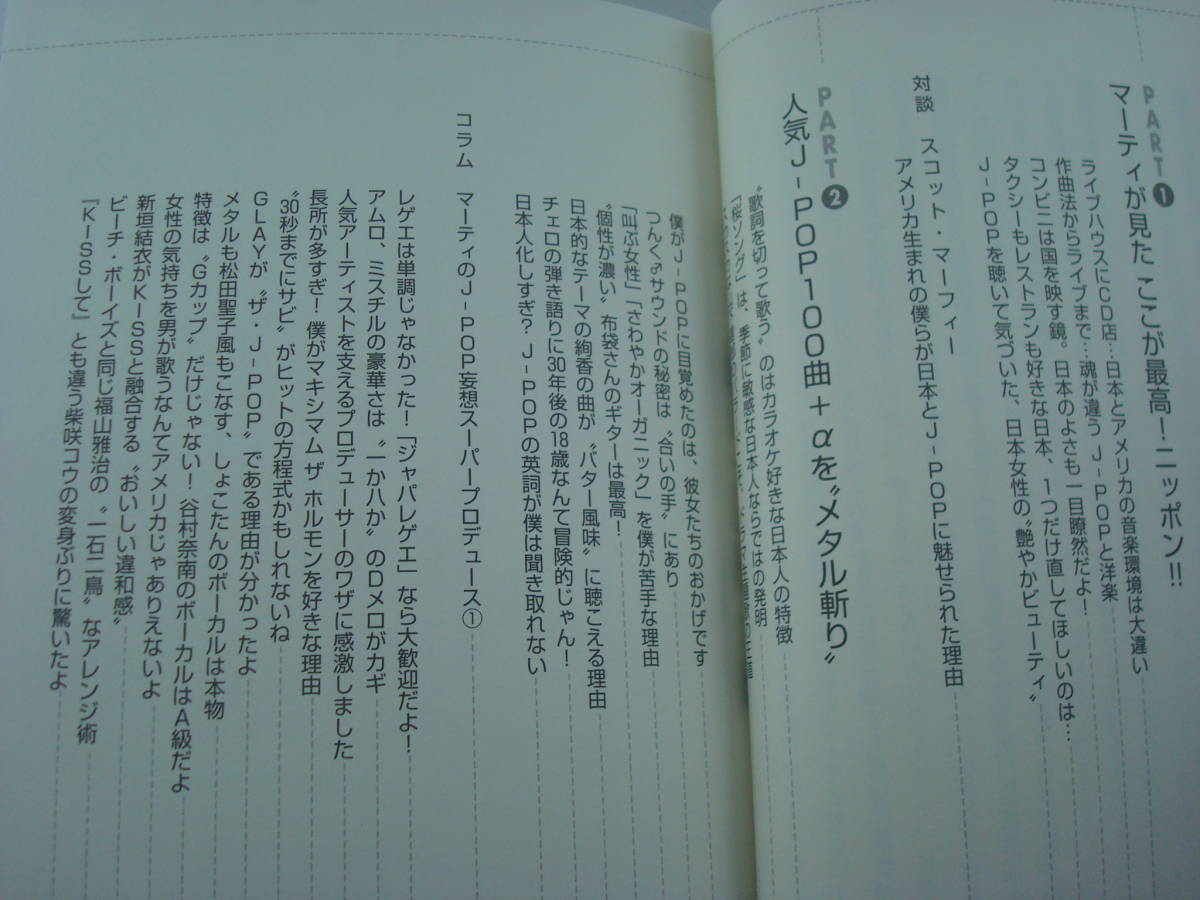 PART❶
マーティが見た ここが最高!ニッポン!!
ライブハウスにCD店…日本とアメリカの音楽環境は大違い
作曲法からライブまで…魂が違うJ-POPと洋楽
コンビニは国を映す鏡。日本のよさも一目瞭然だよ!
タクシーもレストランも好きな日本、1つだけ直してほしいのは…
J-POPを聴いて気づいた、日本女性の〝艶やかビューティ〟
対談 スコット・マーフィー
アメリカ生まれの僕らが日本とJ-POPに魅せられた理由
PART❷
人気J-POP100曲+αを〝メタル斬り〟
〝歌詞を切って歌う〟のはカラオケ好きな日本人の特徴
「桜ソング」は、季節に敏感な日本人ならではの発明
僕がJ-POPに目覚めたのは、彼女たちのおかげです
つんく♂サウンドの秘密は〝合いの手〟にあり
「叫ぶ女性」「さわやかオーガニック」を僕が苦手な理由
〝個性が濃い〟布袋さんのギターは最高!
日本的なテーマの絢香の曲が〝バター風味〟に聴こえる理由
チェロの弾き語りに30年後の18歳なんて冒険的じゃん!
日本人化しすぎ?J-POPの英詞が僕は聞き取れない
コラム マーティのJ-POP妄想スーパープロデュース①
レゲエは単調じゃなかった!「ジャパレゲエ」なら大歓迎だよ!
アムロ、ミスチルの豪華さは〝一か八か〟のDメロがカギ
人気アーティストを支えるプロデューサーのワザに感激しました
長所が多すぎ!僕がマキシマム ザ ホルモンを好きな理由
〝30秒までにサビ〟がヒットの方程式かもしれないね
GLAYが〝ザ・J-POP〟である理由が分かったよ
メタルも松田聖子風もこなす、しょこたんのボーカルは本物
特徴は〝Gカップ〟だけじゃない!谷村奈南のボーカルはA級だよ
女性の気持ちを男が歌うなんてアメリカじゃありえないよ
新垣結衣がKISSと融合する〝おいしい違和感〟
ビーチ・ボーイズと同じ福山雅治の〝一石二鳥〟なアレンジ術
『KISSして』とも違う柴咲コウの変身ぶりに驚いたよ